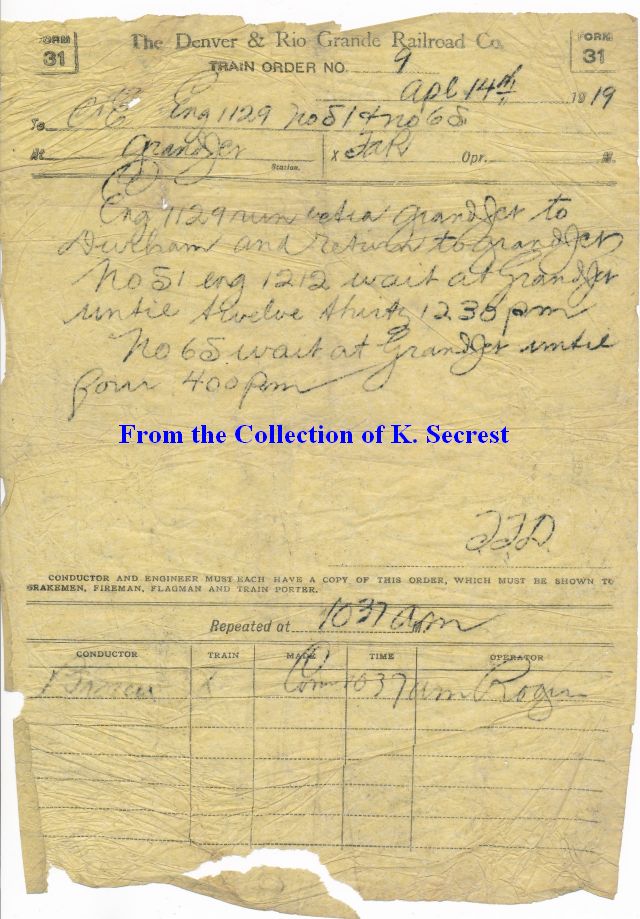 FORM 31
The Denver & Rio Grande Railroad Co.
FORM 31
TRAIN ORDER NO. 9
Apl 14th 1919
To C&E Eng 1129 No 51 & No 65
At Grand Jct Station. X Opr. M.
Eng 1129 run extra Grand Jct to
Durham and return to Grand Jct
No 51 eng 1212 wait at Grand Jct
until twelve thirty 1230 pm
No 65 wait at Grand Jct until
four 400 pm
From the Collection of K. Secrest
CONDUCTOR AND ENGINEER MUST EACH HAVE A COPY OF THIS ORDER, WHICH MUST BE SHOWN TO
BRAKEMEN, FIREMAN, FLAGMAN AND TRAIN PORTER.
Repeated at 1037 am
CONDUCTOR TRAIN MADE TIME OPERATOR
X Com 1037 am